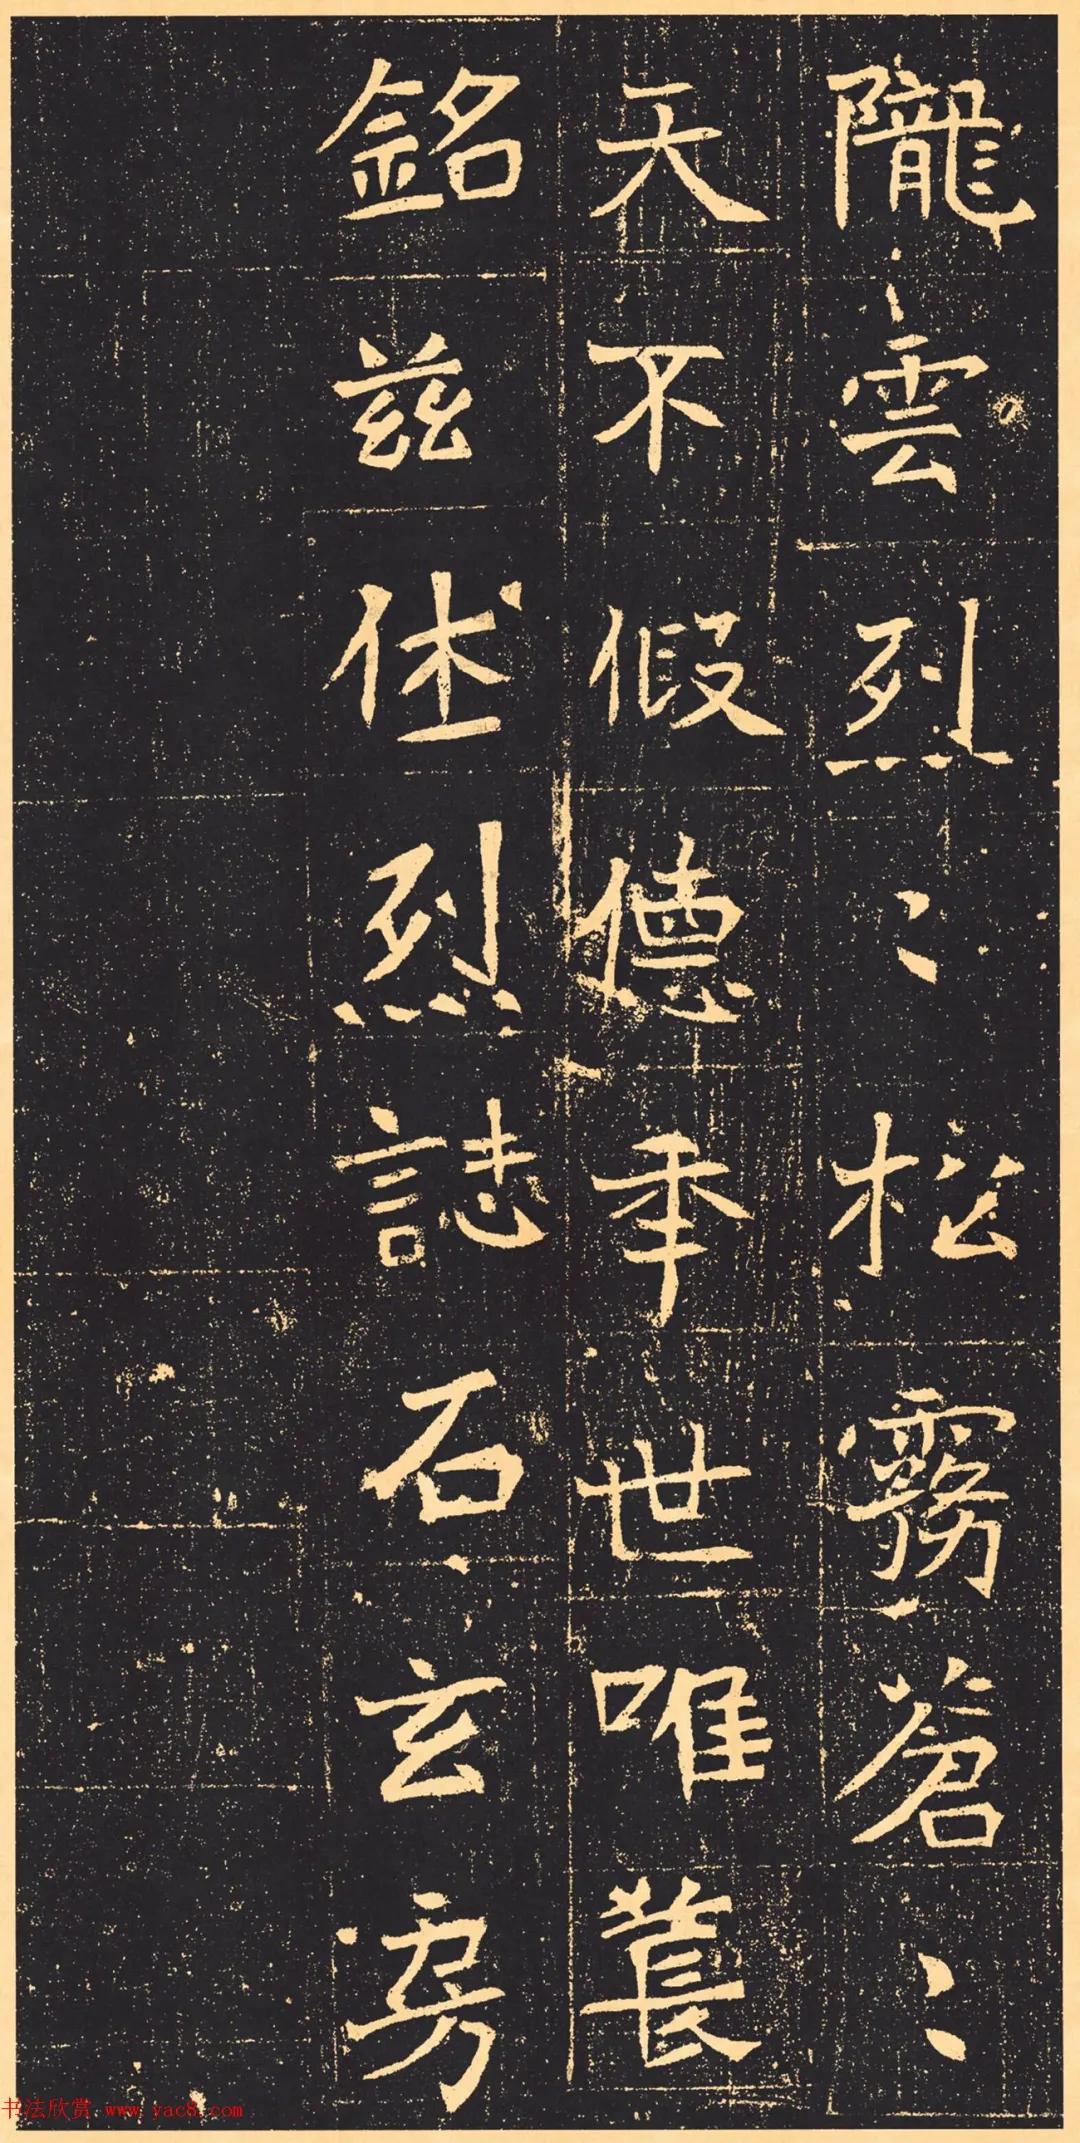 隴雲烈〻松霧蒼〻
天不假德季世唯長
銘茲休烈誌石玄房
书法欣赏 www.yac8.com